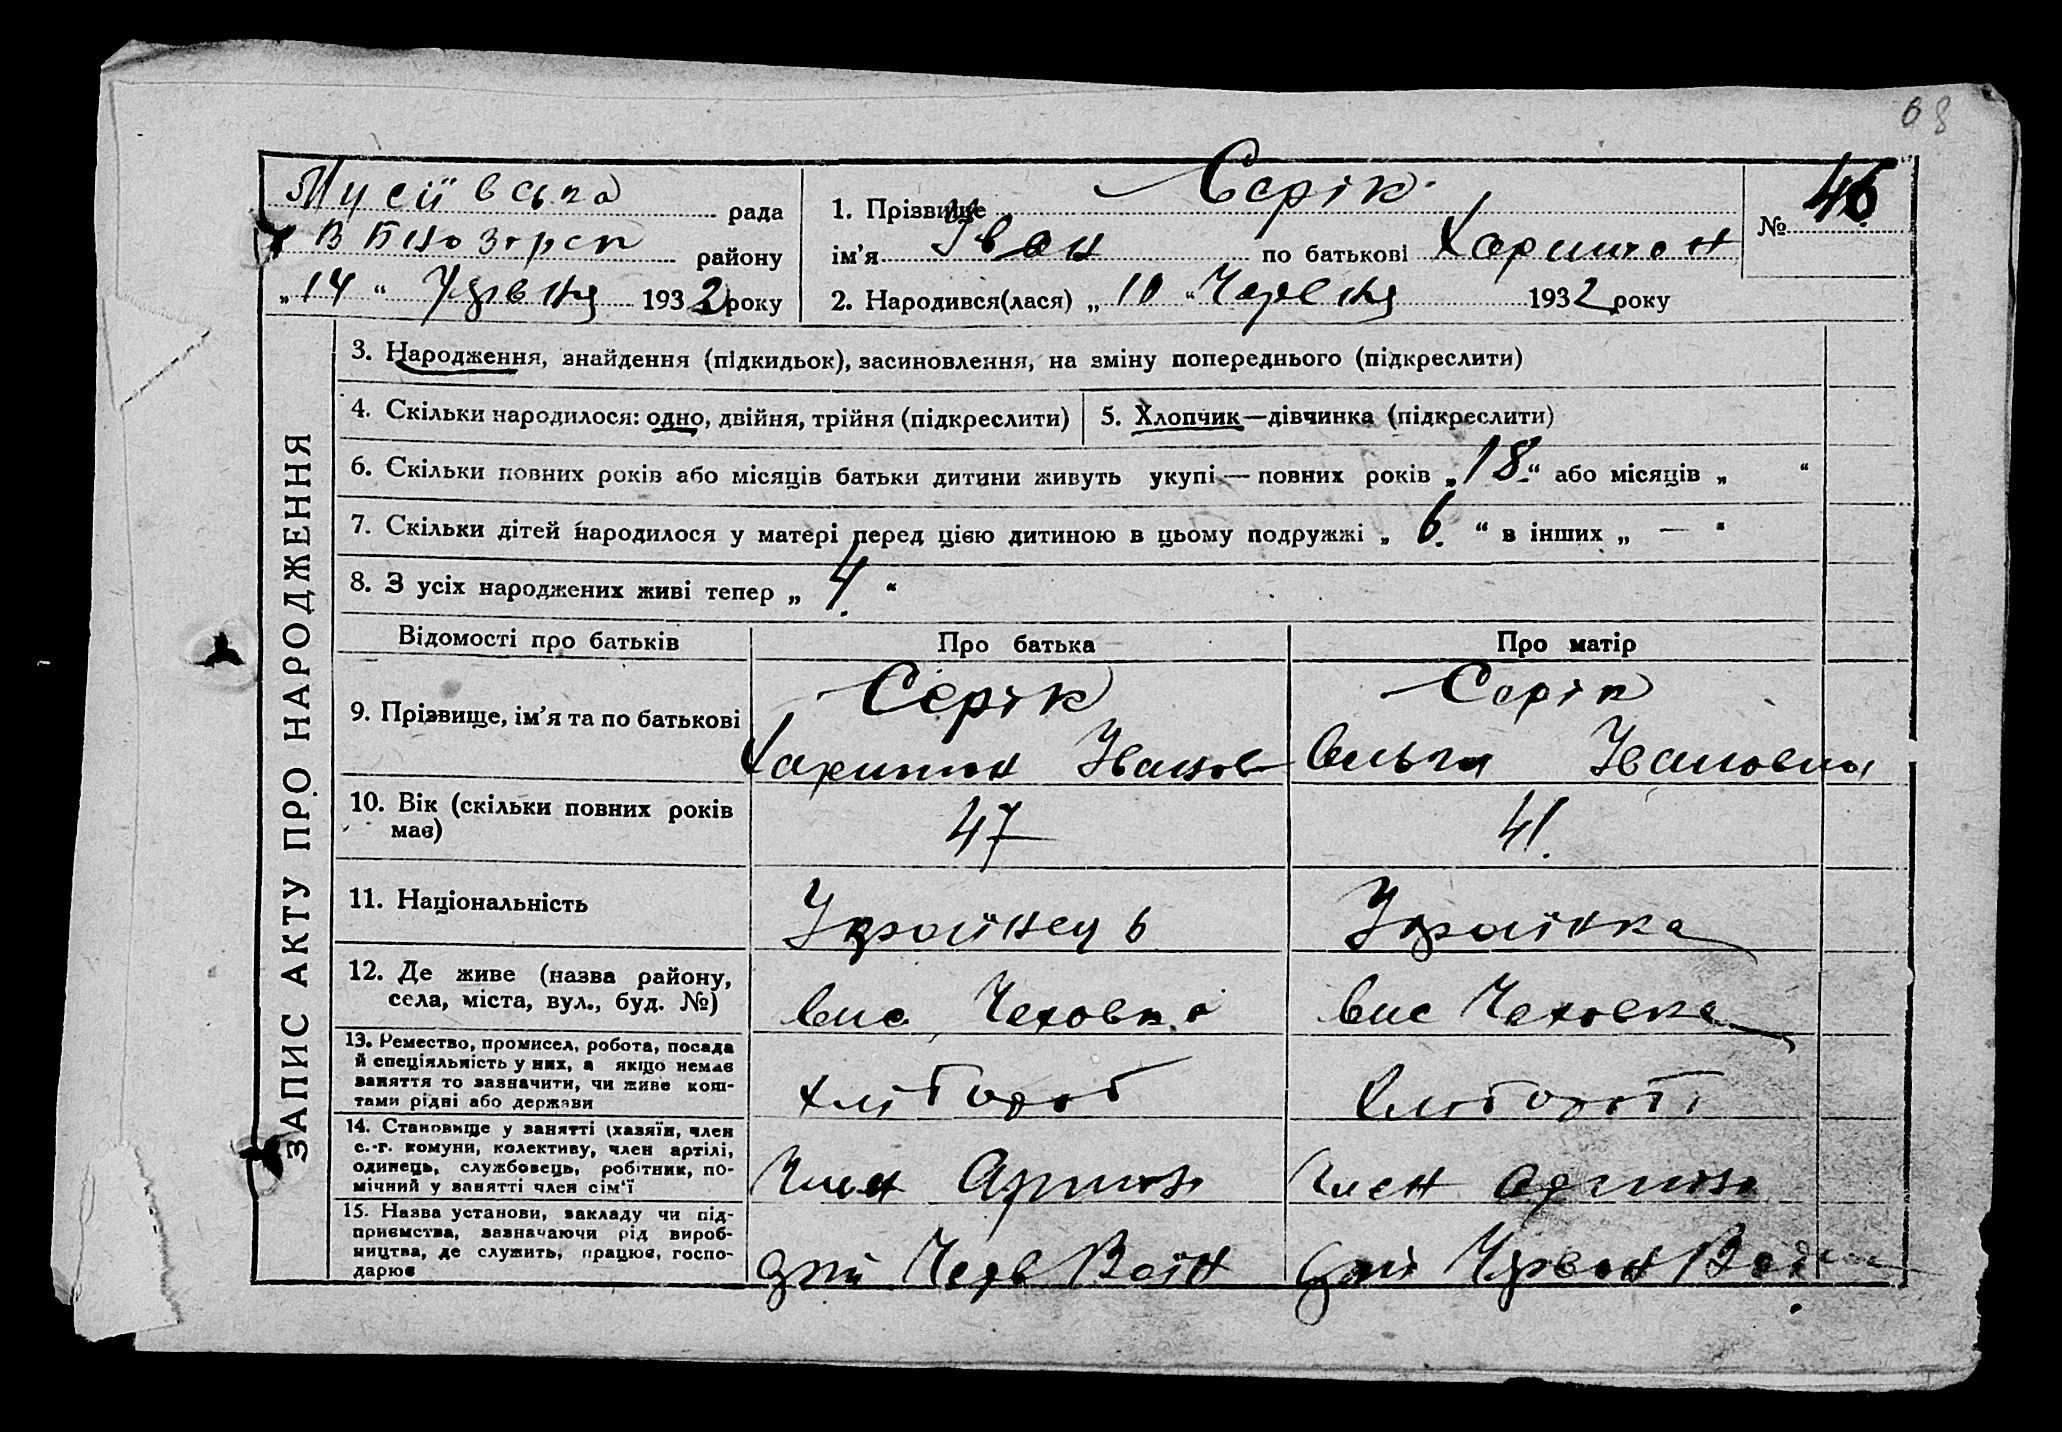 68
Мусіївська рада
В Білозерск району
„14“ Червня 1932 року
1. Прізвище Сєрік
ім’я Іван по батькові Харитон
№ 46
2. Народився(лася) „10“ Червня 1932 року
ЗАПИС АКТУ ПРО НАРОДЖЕННЯ
3. Народження, знайдення (підкидьок), засиновлення, на зміну попереднього (підкреслити)
4. Скільки народилося: одно, двійня, трійня (підкреслити)
5. Хлопчик—дівчинка (підкреслити)
6. Скільки повних років або місяців батьки дитини живуть укупі — повних років „18“ або місяців „ “
7. Скільки дітей народилося у матері перед цією дитиною в цьому подружжі „6“ в інших „ — “
8. З усіх народжених живі тепер „4“
Відомості про батьків Про батька Про матір
9. Прізвище, ім’я та по батькові
Сєрік
Харитон Іванов
Сєрік
Ольга Івановна
10. Вік (скільки повних років
має)
47
41
11. Національність
Українець
Українка
12. Де живе (назва району,
села, міста, вул., буд. №)
вис Чеховка
вис Чеховка
13. Ремество, промисел, робота, посада
й спеціяльність у них, а якщо немає
заняття то зазначити, чи живе кош-
тами рідні або держави
хлібороб
14. Становище у занятті (хазяїн, член
с.-г. комуни, колективу, член артілі,
одинець, службовець, робітник, по-
мічний у занятті член сім’ї
Член Артілі
Член артілі
15. Назва установи, закладу чи під-
приємства, зазначаючи рід вироб-
ництва, де служить, працює, госпо-
дарює
Черв Воїн
Червон